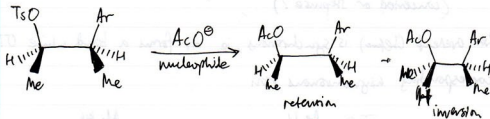 TsO Ar
H Me Me H
AcO⊖
nucleophile
AcO Ar
H Me Me H
retention
AcO Ar
Me H Me H
inversion